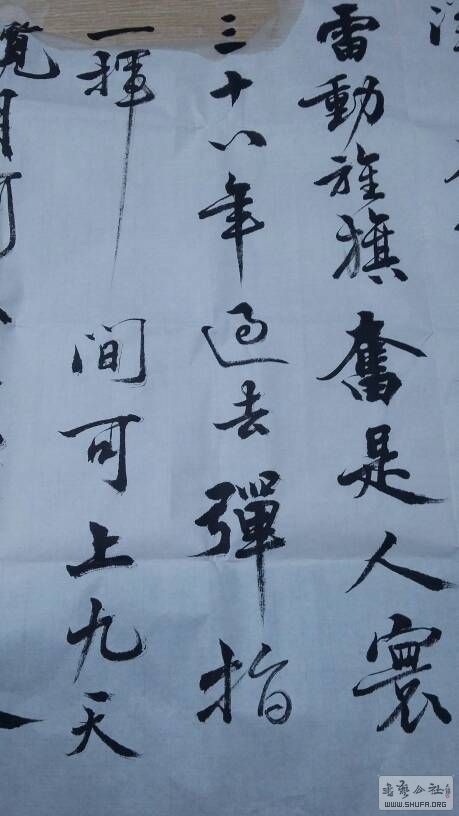 雷動旌旗奮是人寰
三十八年過去彈指
一揮間可上九天
覽月可
書藝公社
WWW.SHUFA.ORG